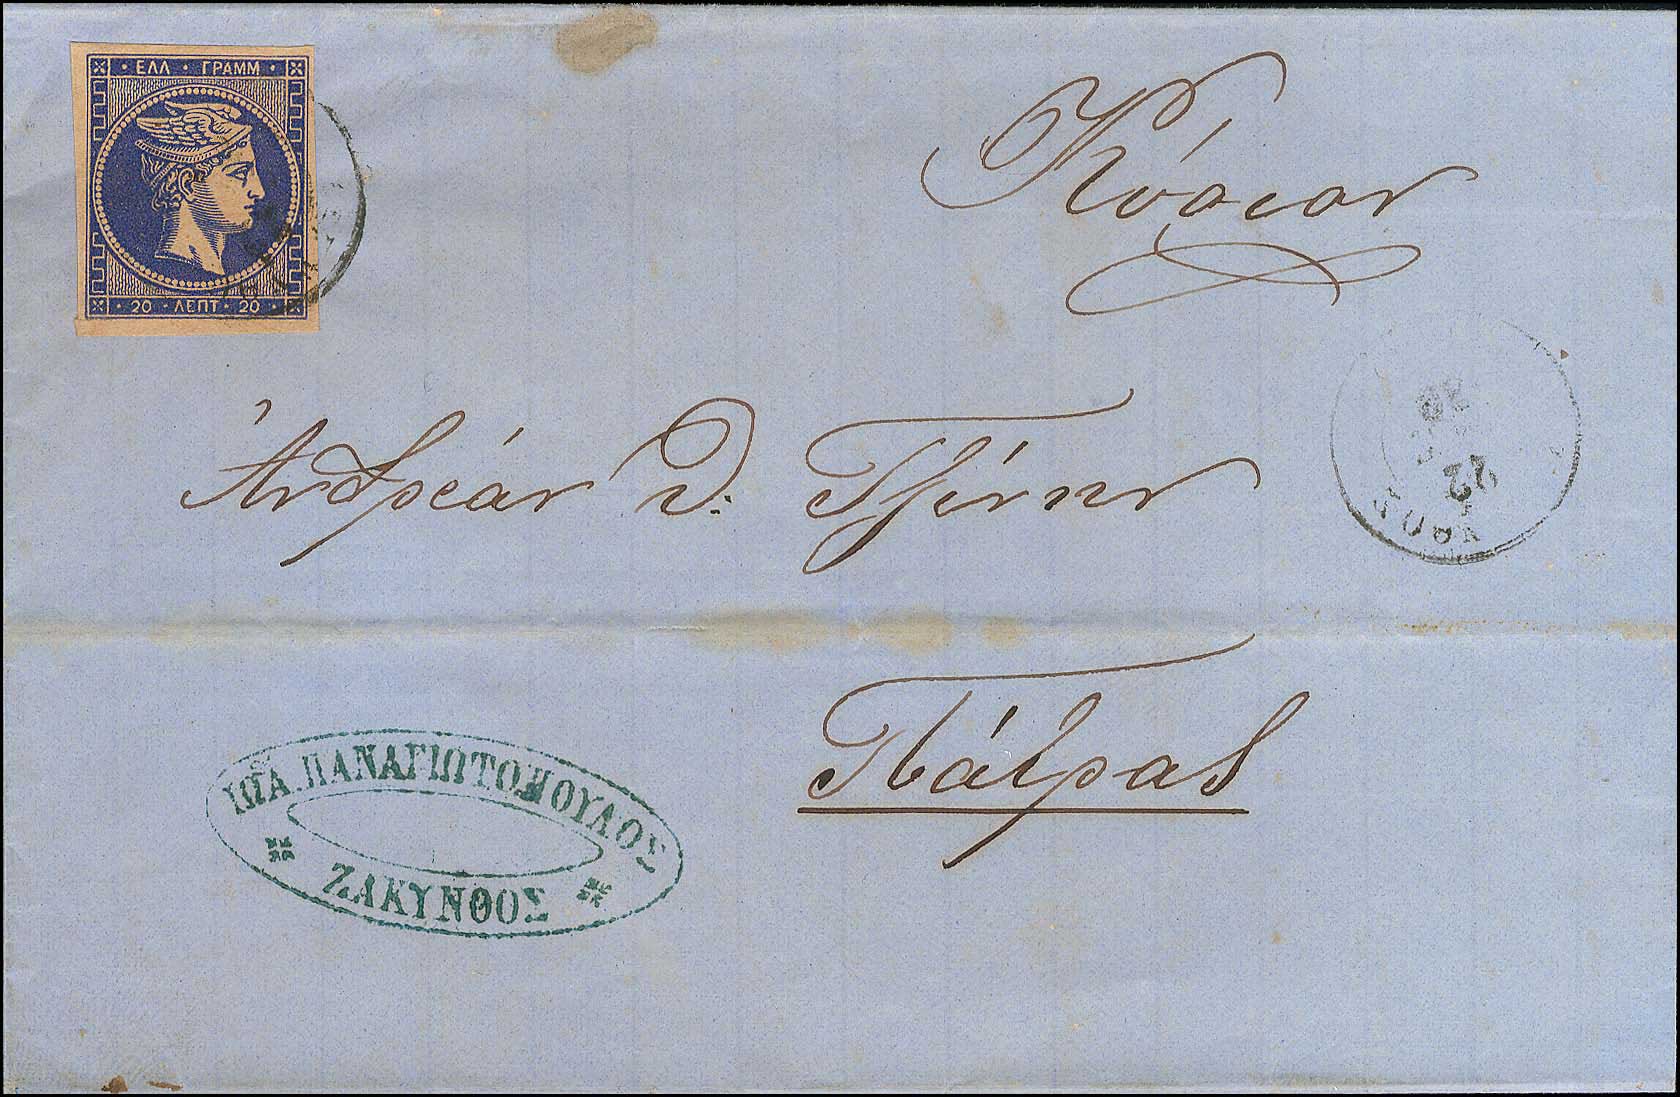 · ΕΛΛ · ΓΡΑΜΜ ·
· 20 · ΛΕΠΤ · 20 ·
Κύριον
Ἀνδρέαν Θ: Τζίνην
Πάτρας
22
ΙΩΑ. ΠΑΝΑΓΙΩΤΟΠΟΥΛΟΣ
ΖΑΚΥΝΘΟΣ